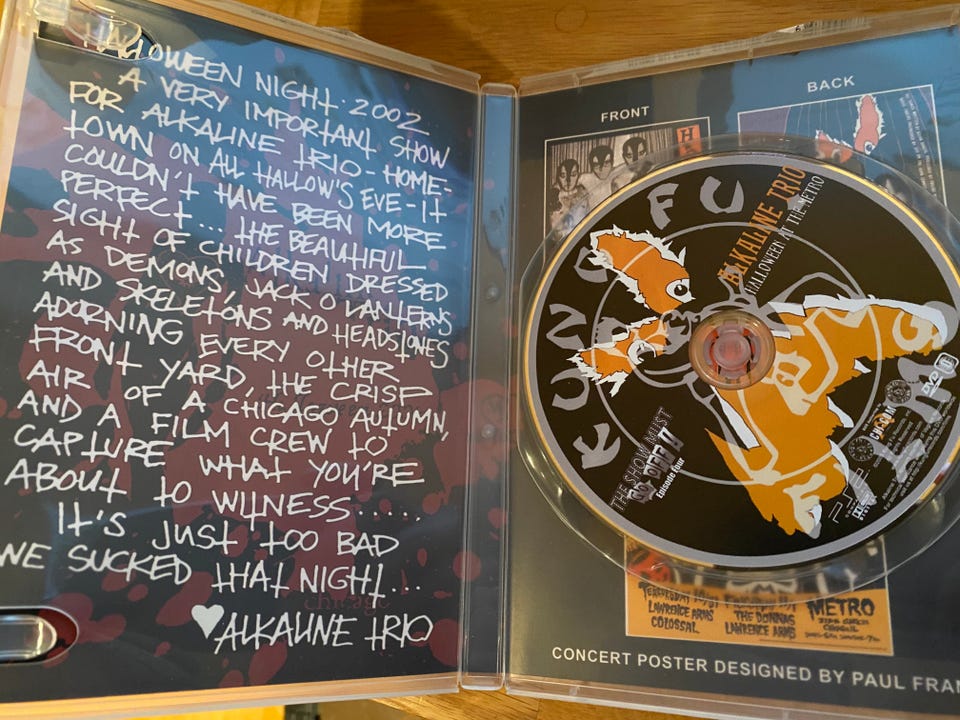 HALLOWEEN NIGHT · 2002
A VERY IMPORTANT SHOW
FOR ALKALINE TRIO - HOME-
TOWN ON ALL HALLOW'S EVE - IT
COULDN'T HAVE BEEN MORE
PERFECT... THE BEAUTIFUL
SIGHT OF CHILDREN DRESSED
AS DEMONS, JACK O LANTERNS
AND SKELETONS AND HEADSTONES
ADORNING EVERY OTHER
FRONT YARD, THE CRISP
AIR OF A CHICAGO AUTUMN,
AND A FILM CREW TO
CAPTURE WHAT YOU'RE
ABOUT TO WITNESS.....
IT'S JUST TOO BAD
WE SUCKED THAT NIGHT...
♥ALKALINE TRIO
FRONT
BACK
ALKALINE TRIO
HALLOWEEN AT THE METRO
KUNG FU
THE SHOW MUST
GO OFF!
Episode Four
DVD
LAWRENCE ARMS
COLOSSAL
THE DONNAS
LAWRENCE ARMS
METRO
CONCERT POSTER DESIGNED BY PAUL FRAN